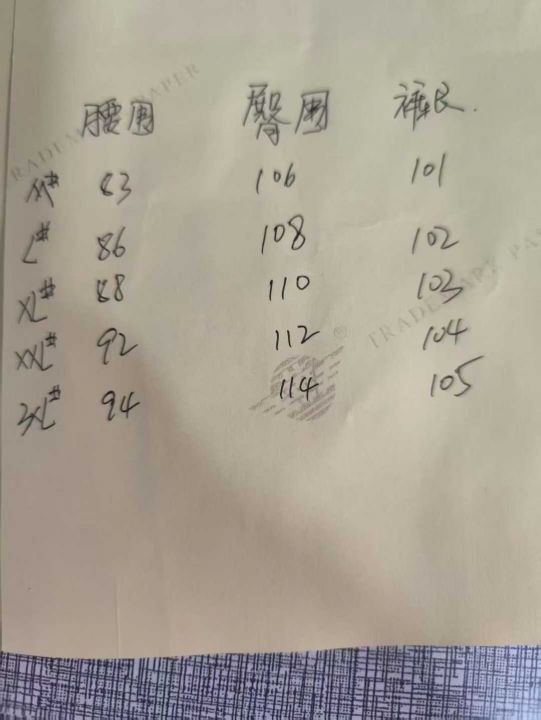 腰围 臀围 裤长.
M# 83 106 101
L# 86 108 102
XL# 88 110 103
XXL# 92 112 104
3XL# 94 114 105
TRADEMARK PAPER
®
TRADEMARK PAPER